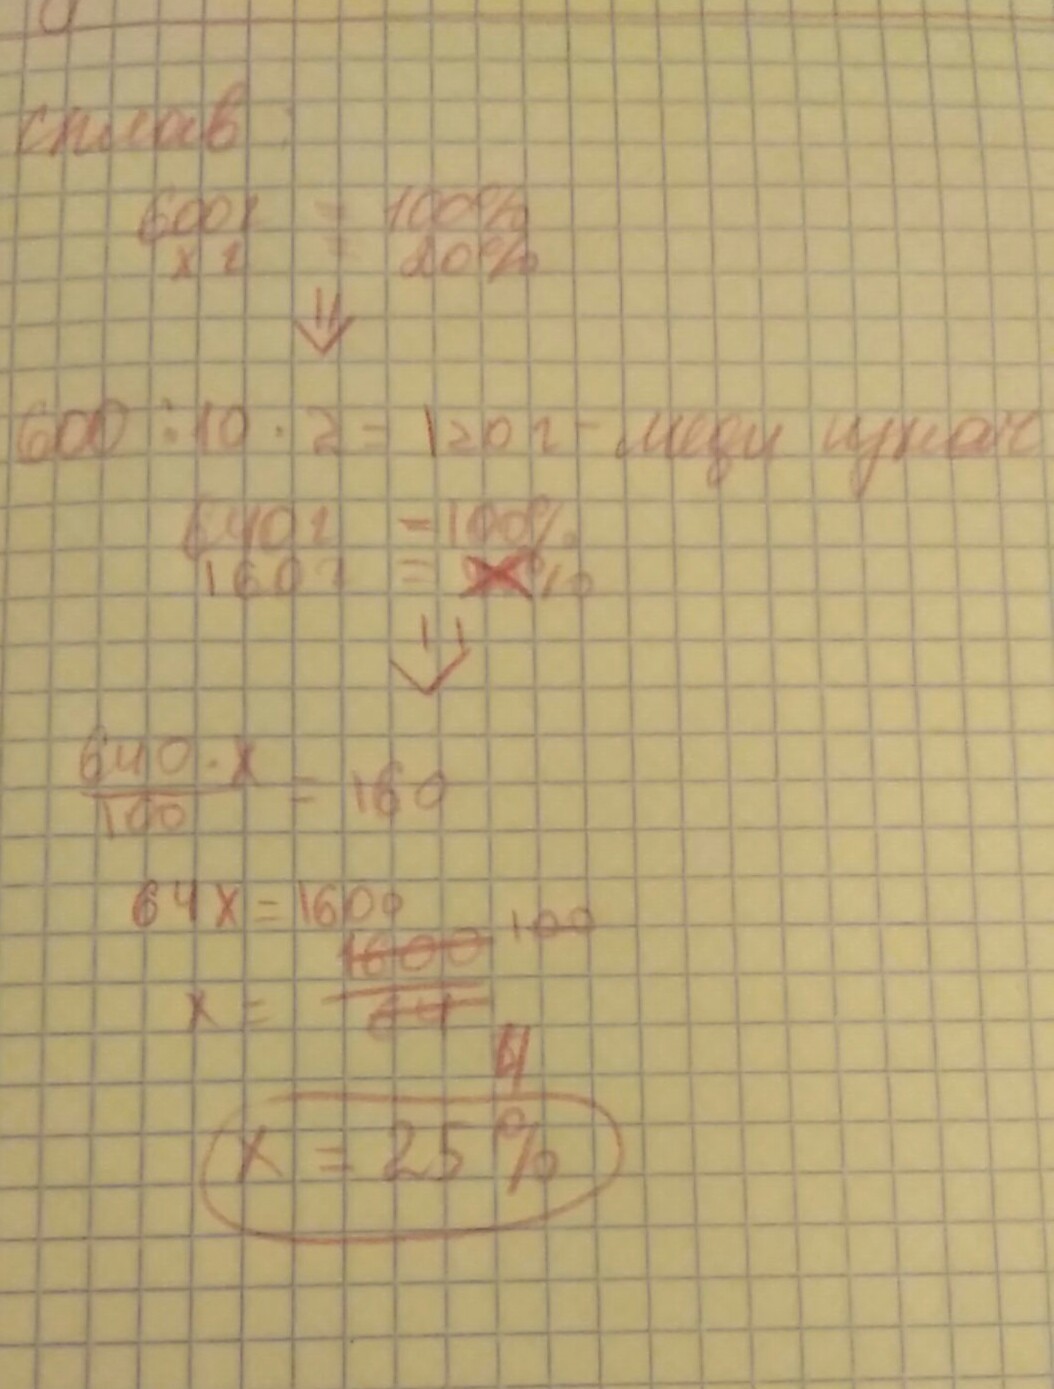 сплав:
600г = 100%
x г = 20%
600 : 10 · 2 = 120г - меди изнач
640г = 100%
160г = x%
640 · x
100
= 160
64x = 1600
1600 100
x =
64
4
x = 25%